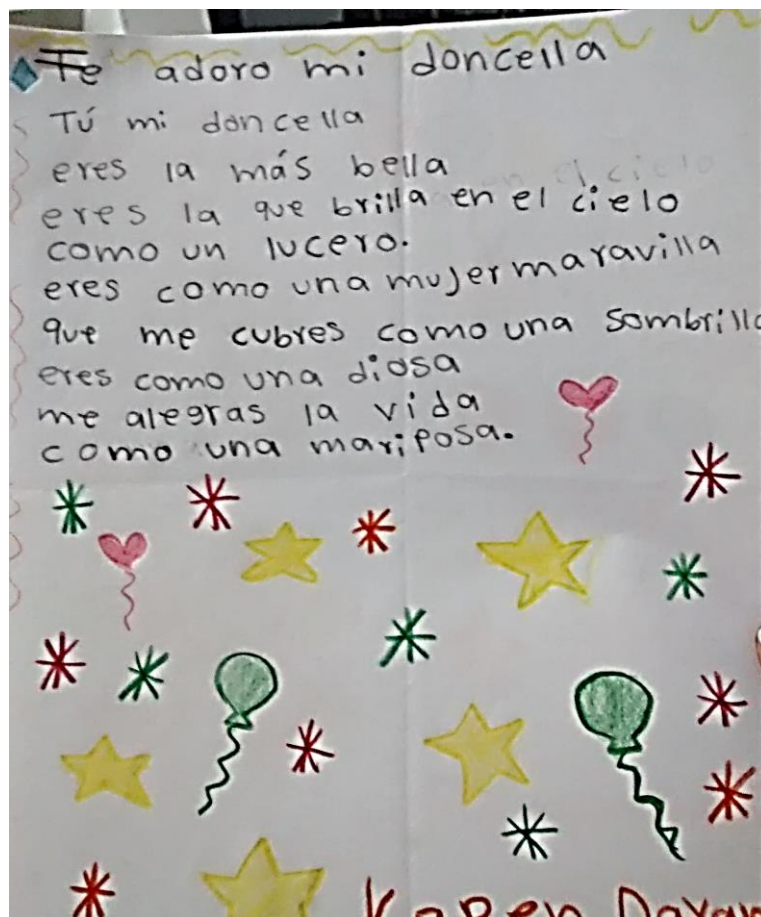 Te adoro mi doncella
Tú mi doncella
eres la más bella
eres la que brilla en el cielo
como un lucero.
eres como una mujer maravilla
que me cubres como una sombrilla
eres como una diosa
me alegras la vida
como una mariposa.
Karen